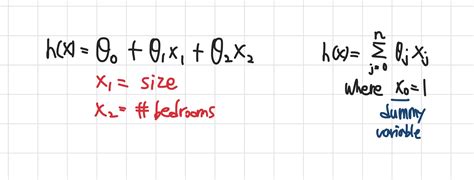 h(x) = θ₀ + θ₁x₁ + θ₂x₂
x₁ = size
x₂ = # bedrooms
h(x) = ∑ⱼ₌₀ⁿ θⱼ xⱼ
where x₀ = 1
dummy
variable